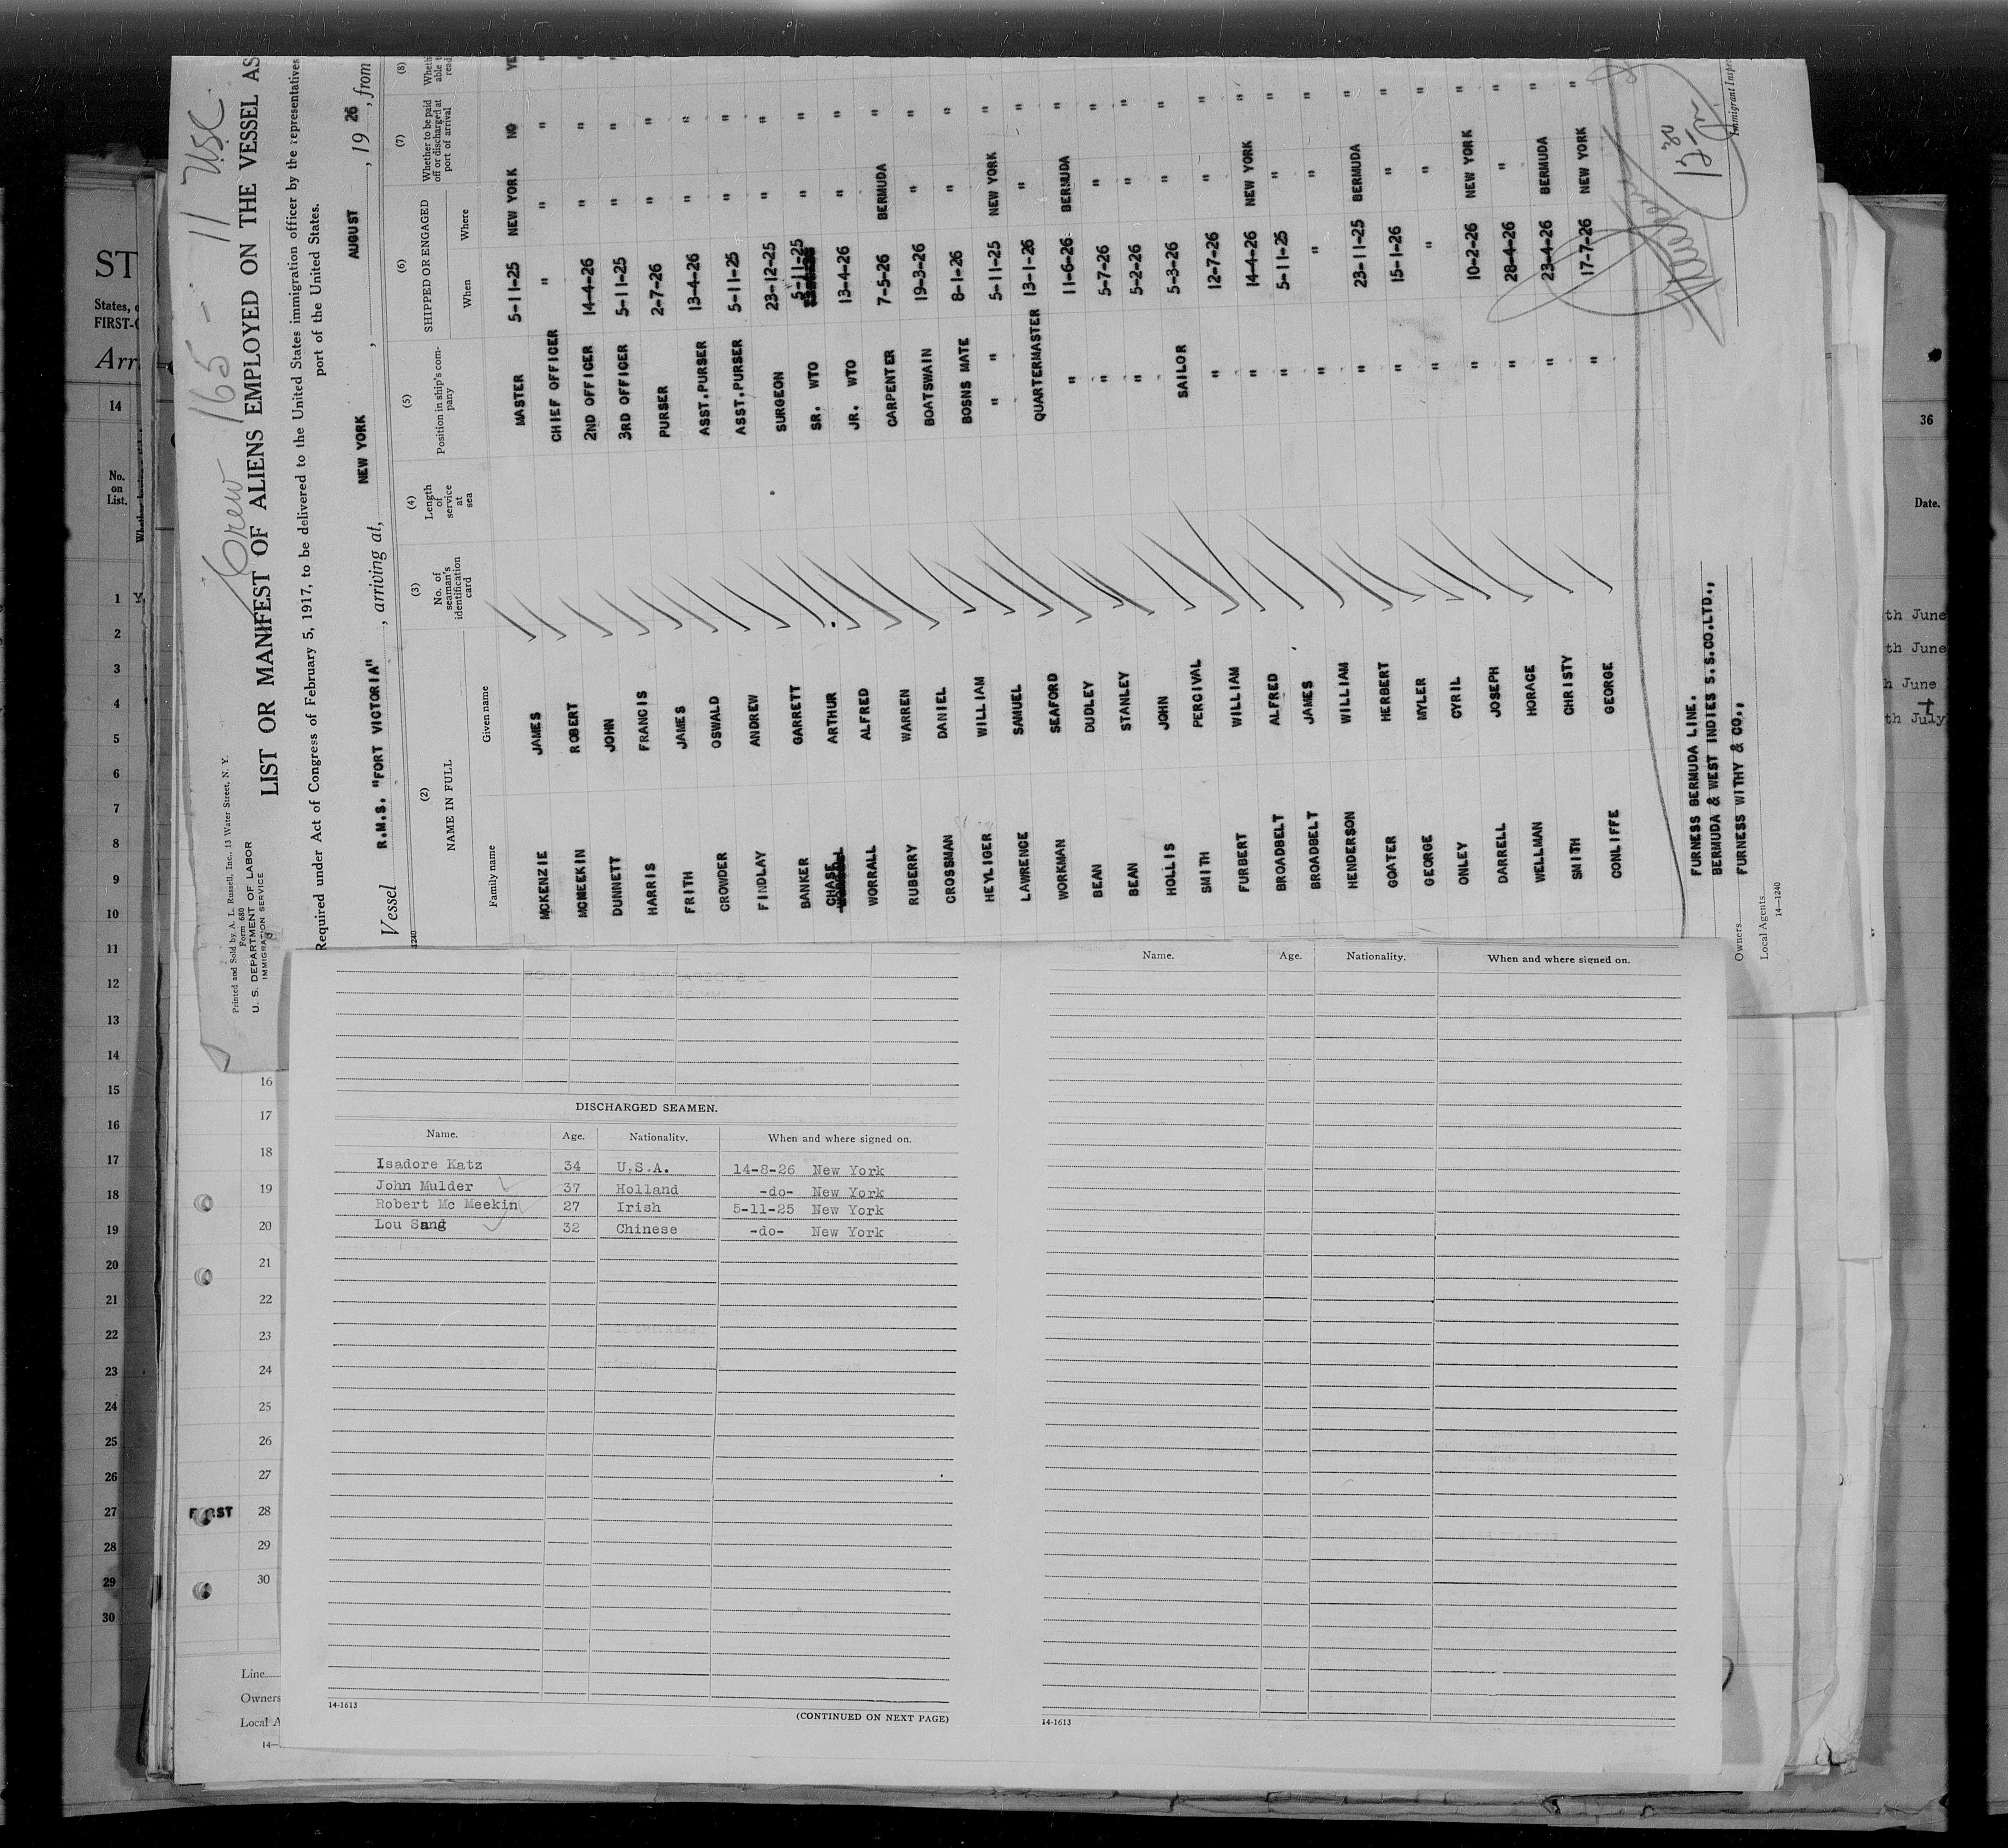 Crew 165 - 11 USC.
Printed and Sold by A. L. Russell, Inc., 13 Water Street, N. Y.
Form 680
U. S. DEPARTMENT OF LABOR
IMMIGRATION SERVICE
LIST OR MANIFEST OF ALIENS EMPLOYED ON THE VESSEL AS
Required under Act of Congress of February 5, 1917, to be delivered to the United States immigration officer by the representatives
port of the United States.
Vessel R.M.S. "FORT VICTORIA", arriving at, NEW YORK, AUGUST, 19 26, from
1240
(2) (3) (4) (5) (6) (7) (8)
NAME IN FULL No. of seaman's identification card Length of service at sea Position in ship's company SHIPPED OR ENGAGED Whether to be paid off or discharged at port of arrival
Family name Given name When Where
MCKENZIE JAMES MASTER 5-11-25 NEW YORK NO YE
MCMEEKIN ROBERT CHIEF OFFICER " " " "
DUNNETT JOHN 2ND OFFICER 14-4-26 " " "
HARRIS FRANCIS 3RD OFFICER 5-11-25 " " "
FRITH JAMES PURSER 2-7-26 " " "
CROWDER OSWALD ASST.PURSER 13-4-26 " " "
FINDLAY ANDREW ASST.PURSER 5-11-25 " " "
BANKER GARRETT SURGEON 23-12-25 " " "
CHASE ARTHUR SR. WTO 5-11-25 " " "
WORRALL ALFRED JR. WTO 13-4-26 " " "
RUBERRY WARREN CARPENTER 7-5-26 BERMUDA " "
CROSSMAN DANIEL BOATSWAIN 19-3-26 " " "
HEYLIGER WILLIAM BOSNS MATE 8-1-26 " " "
LAWRENCE SAMUEL " " 5-11-25 NEW YORK " "
WORKMAN SEAFORD QUARTERMASTER 13-1-26 " " "
BEAN DUDLEY " 11-6-26 BERMUDA " "
BEAN STANLEY " 5-7-26 " " "
HOLLIS JOHN " 5-2-26 " " "
SMITH PERCIVAL SAILOR 5-3-26 " " "
FURBERT WILLIAM " 12-7-26 " " "
BROADBELT ALFRED " 14-4-26 NEW YORK " "
BROADBELT JAMES " 5-11-25 " " "
HENDERSON WILLIAM " " " "
GOATER HERBERT " 23-11-25 BERMUDA " "
GEORGE MYLER " 15-1-26 " " "
ONLEY CYRIL " " " "
DARRELL JOSEPH " 10-2-26 NEW YORK " "
WELLMAN HORACE " 28-4-26 " " "
SMITH CHRISTY " 23-4-26 BERMUDA " "
CONLIFFE GEORGE " 17-7-26 NEW YORK " "
FURNESS BERMUDA LINE.
Owners BERMUDA & WEST INDIES S.S.CO.LTD.,
Local Agents FURNESS WITHY & CO.,
14—1240
Immigrant Inspe
ST
States, o
FIRST-C
Arr
14
No.
on
List.
1
2
3
4
5
6
7
8
9
10
11
12
13
14
15
16
17
18
19
20
21
22
23
24
25
26
27
28
29
30
16
17
18
19
20
21
22
23
24
25
26
27
FIRST 28
29
30
Line
Owners
Local A
14—
DISCHARGED SEAMEN.
Name. Age. Nationality. When and where signed on.
Isadore Katz 34 U.S.A. 14-8-26 New York
John Mulder 37 Holland -do- New York
Robert Mc Meekin 27 Irish 5-11-25 New York
Lou Sang 32 Chinese -do- New York
14-1613
(CONTINUED ON NEXT PAGE)
Name. Age. Nationality. When and where signed on.
14-1613
36
Date.
th June
th June
h June
th July